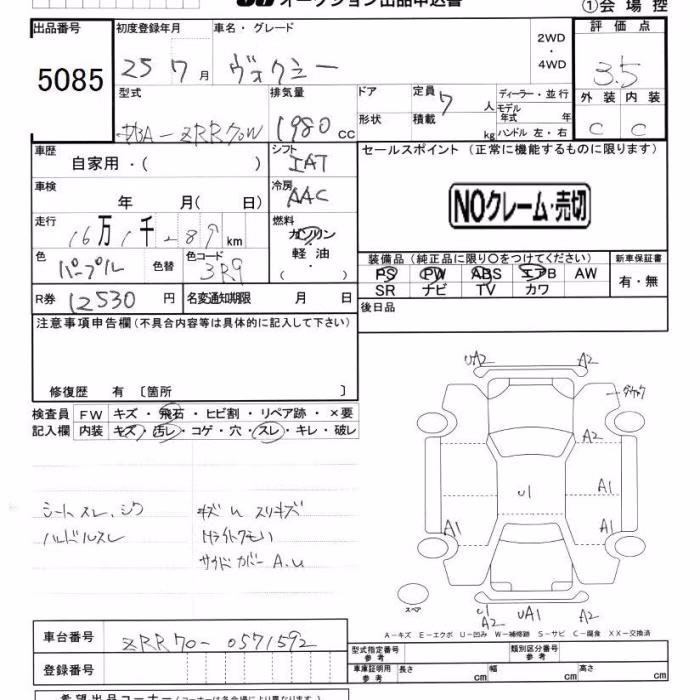 オークション出品申込書 ①会場控
出品番号 初度登録年月 車名・グレード 2WD・4WD 評価点
5085 25 7月 ヴォクシー 3.5
型式 排気量 ドア 定員 7人 ディーラー・並行 外装 内装
DBA-ZRR70W 1980 cc 形状 積載 kg モデル年式 年 C C
ハンドル 左・右
車歴 自家用・( ) シフト IAT セールスポイント (正常に機能するものに限ります)
車検 年 月( 日) 冷房 AAC
NOクレーム・売切
走行 16万1千289km 燃料 ガソリン
軽油・( )
色 パープル 色替 色コード 3R9 装備品(純正品に限り○をつけてください) 新車保証書
PS PW ABS エアB AW 有・無
R券 12530円 名変通知期限 月 日 SR ナビ TV カワ
注意事項申告欄(不具合内容等は具体的に記入して下さい) 後日品
修復歴 有 〔箇所 〕
検査員 FW キズ・飛石・ヒビ割・リペア跡・×要
記入欄 内装 キズ・汚レ・コゲ・穴・スレ・キレ・破レ
シートスレ、シワ
ハンドルスレ
キズu スリキズ
サイドカバー A.u
UA2 A2
A2
U1 A1
A1 A1
スペア
U1 A2 UA1 A2
A-キズ E-エクボ U-凹み W-補修跡 S-サビ C-腐食 XX-交換済
車台番号 ZRR70-0571592
登録番号
型式指定番号 参考 類別区分番号 参考
車庫証明用 参考 長さ cm 幅 cm 高さ cm
希望出品コーナー(コーナーは各会場により異なります。)